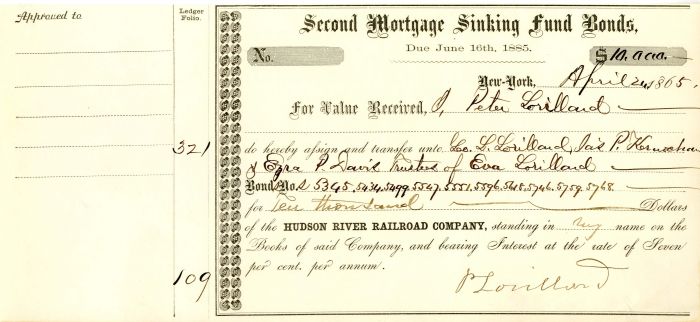 Approved to
Ledger
Folio.
321
109
Second Mortgage Sinking Fund Bonds,
Due June 16th, 1885.
No.
$ 10,000.
New-York, April 24, 1865.
For Value Received, I, Peter Lorillard
do hereby assign and transfer unto Geo. L. Lorillard, Jas P. Kernochan
& Ezra P. Davis Trustees of Eva Lorillard
Bond No.s 5345, 5434, 5499, 5547, 5551, 5596, 5648, 5746, 5759, 5768.
for Ten thousand Dollars
of the HUDSON RIVER RAILROAD COMPANY, standing in my name on the
Books of said Company, and bearing Interest at the rate of Seven
per cent. per annum.
P Lorillard